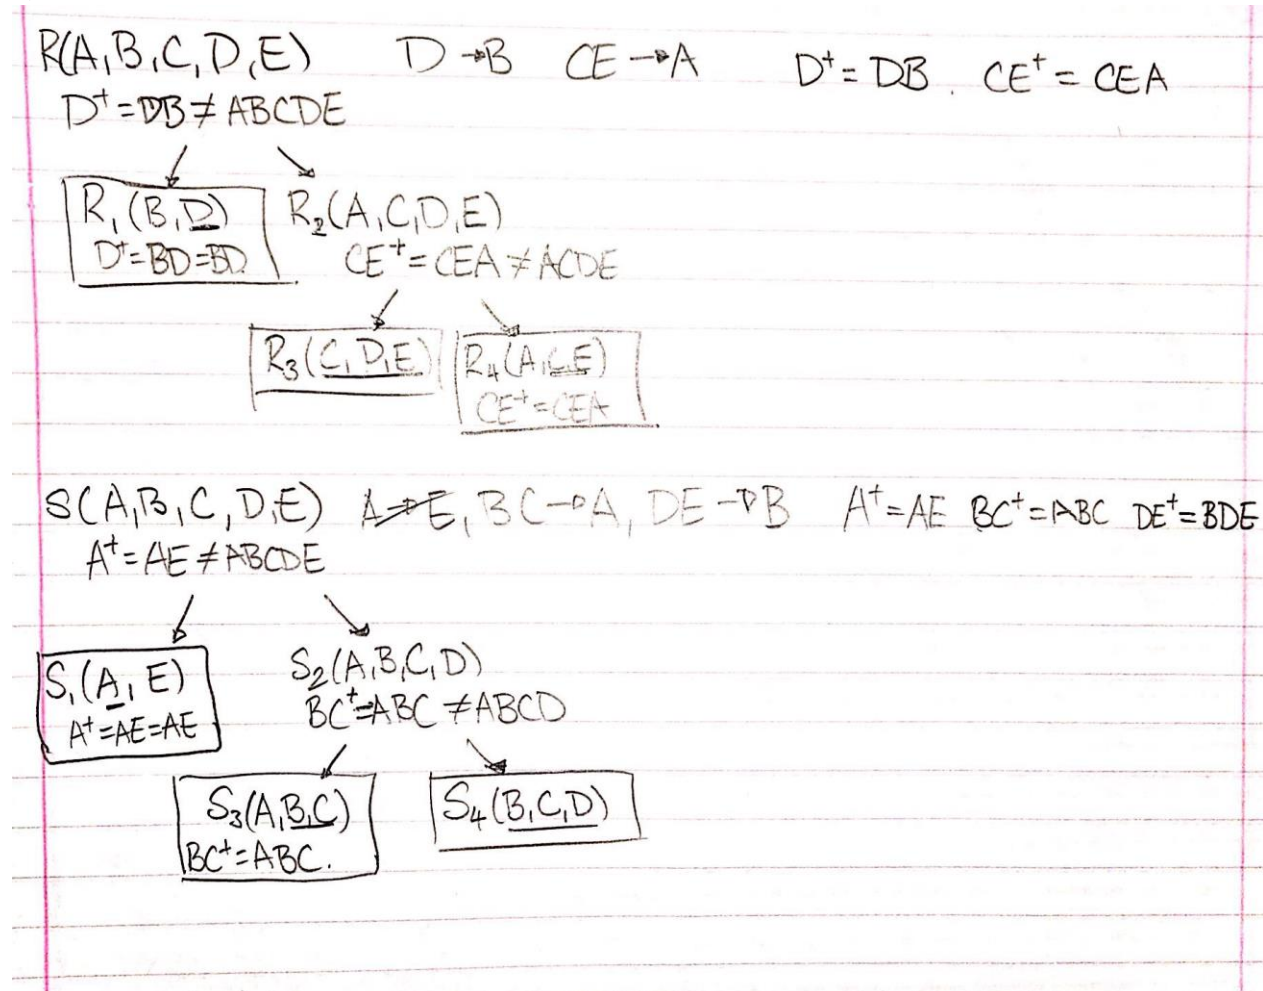 R(A,B,C,D,E) D→B CE→A D⁺=DB. CE⁺=CEA
D⁺=DB≠ABCDE
R₁(B,D) R₂(A,C,D,E)
D⁺=BD=BD CE⁺=CEA≠ACDE
R₃(C,D,E) R₄(A,C,E)
CE⁺=CEA
S(A,B,C,D,E) A→E, BC→A, DE→B A⁺=AE BC⁺=ABC DE⁺=BDE
A⁺=AE≠ABCDE
S₁(A,E) S₂(A,B,C,D)
A⁺=AE=AE BC⁺=ABC≠ABCD
S₃(A,B,C) S₄(B,C,D)
BC⁺=ABC.